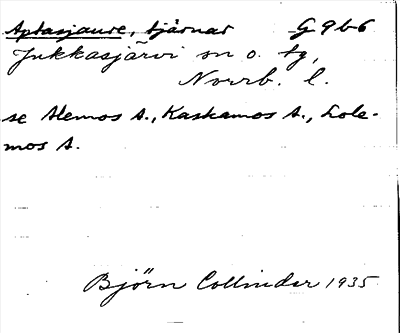 Aptasjaure, tjärnar G 9 b-6
Jukkasjärvi sn o. tg,
Norrb. l.
se Alemos A., Kaskamos A., Lole-
mos A.
Björn Collinder 1935